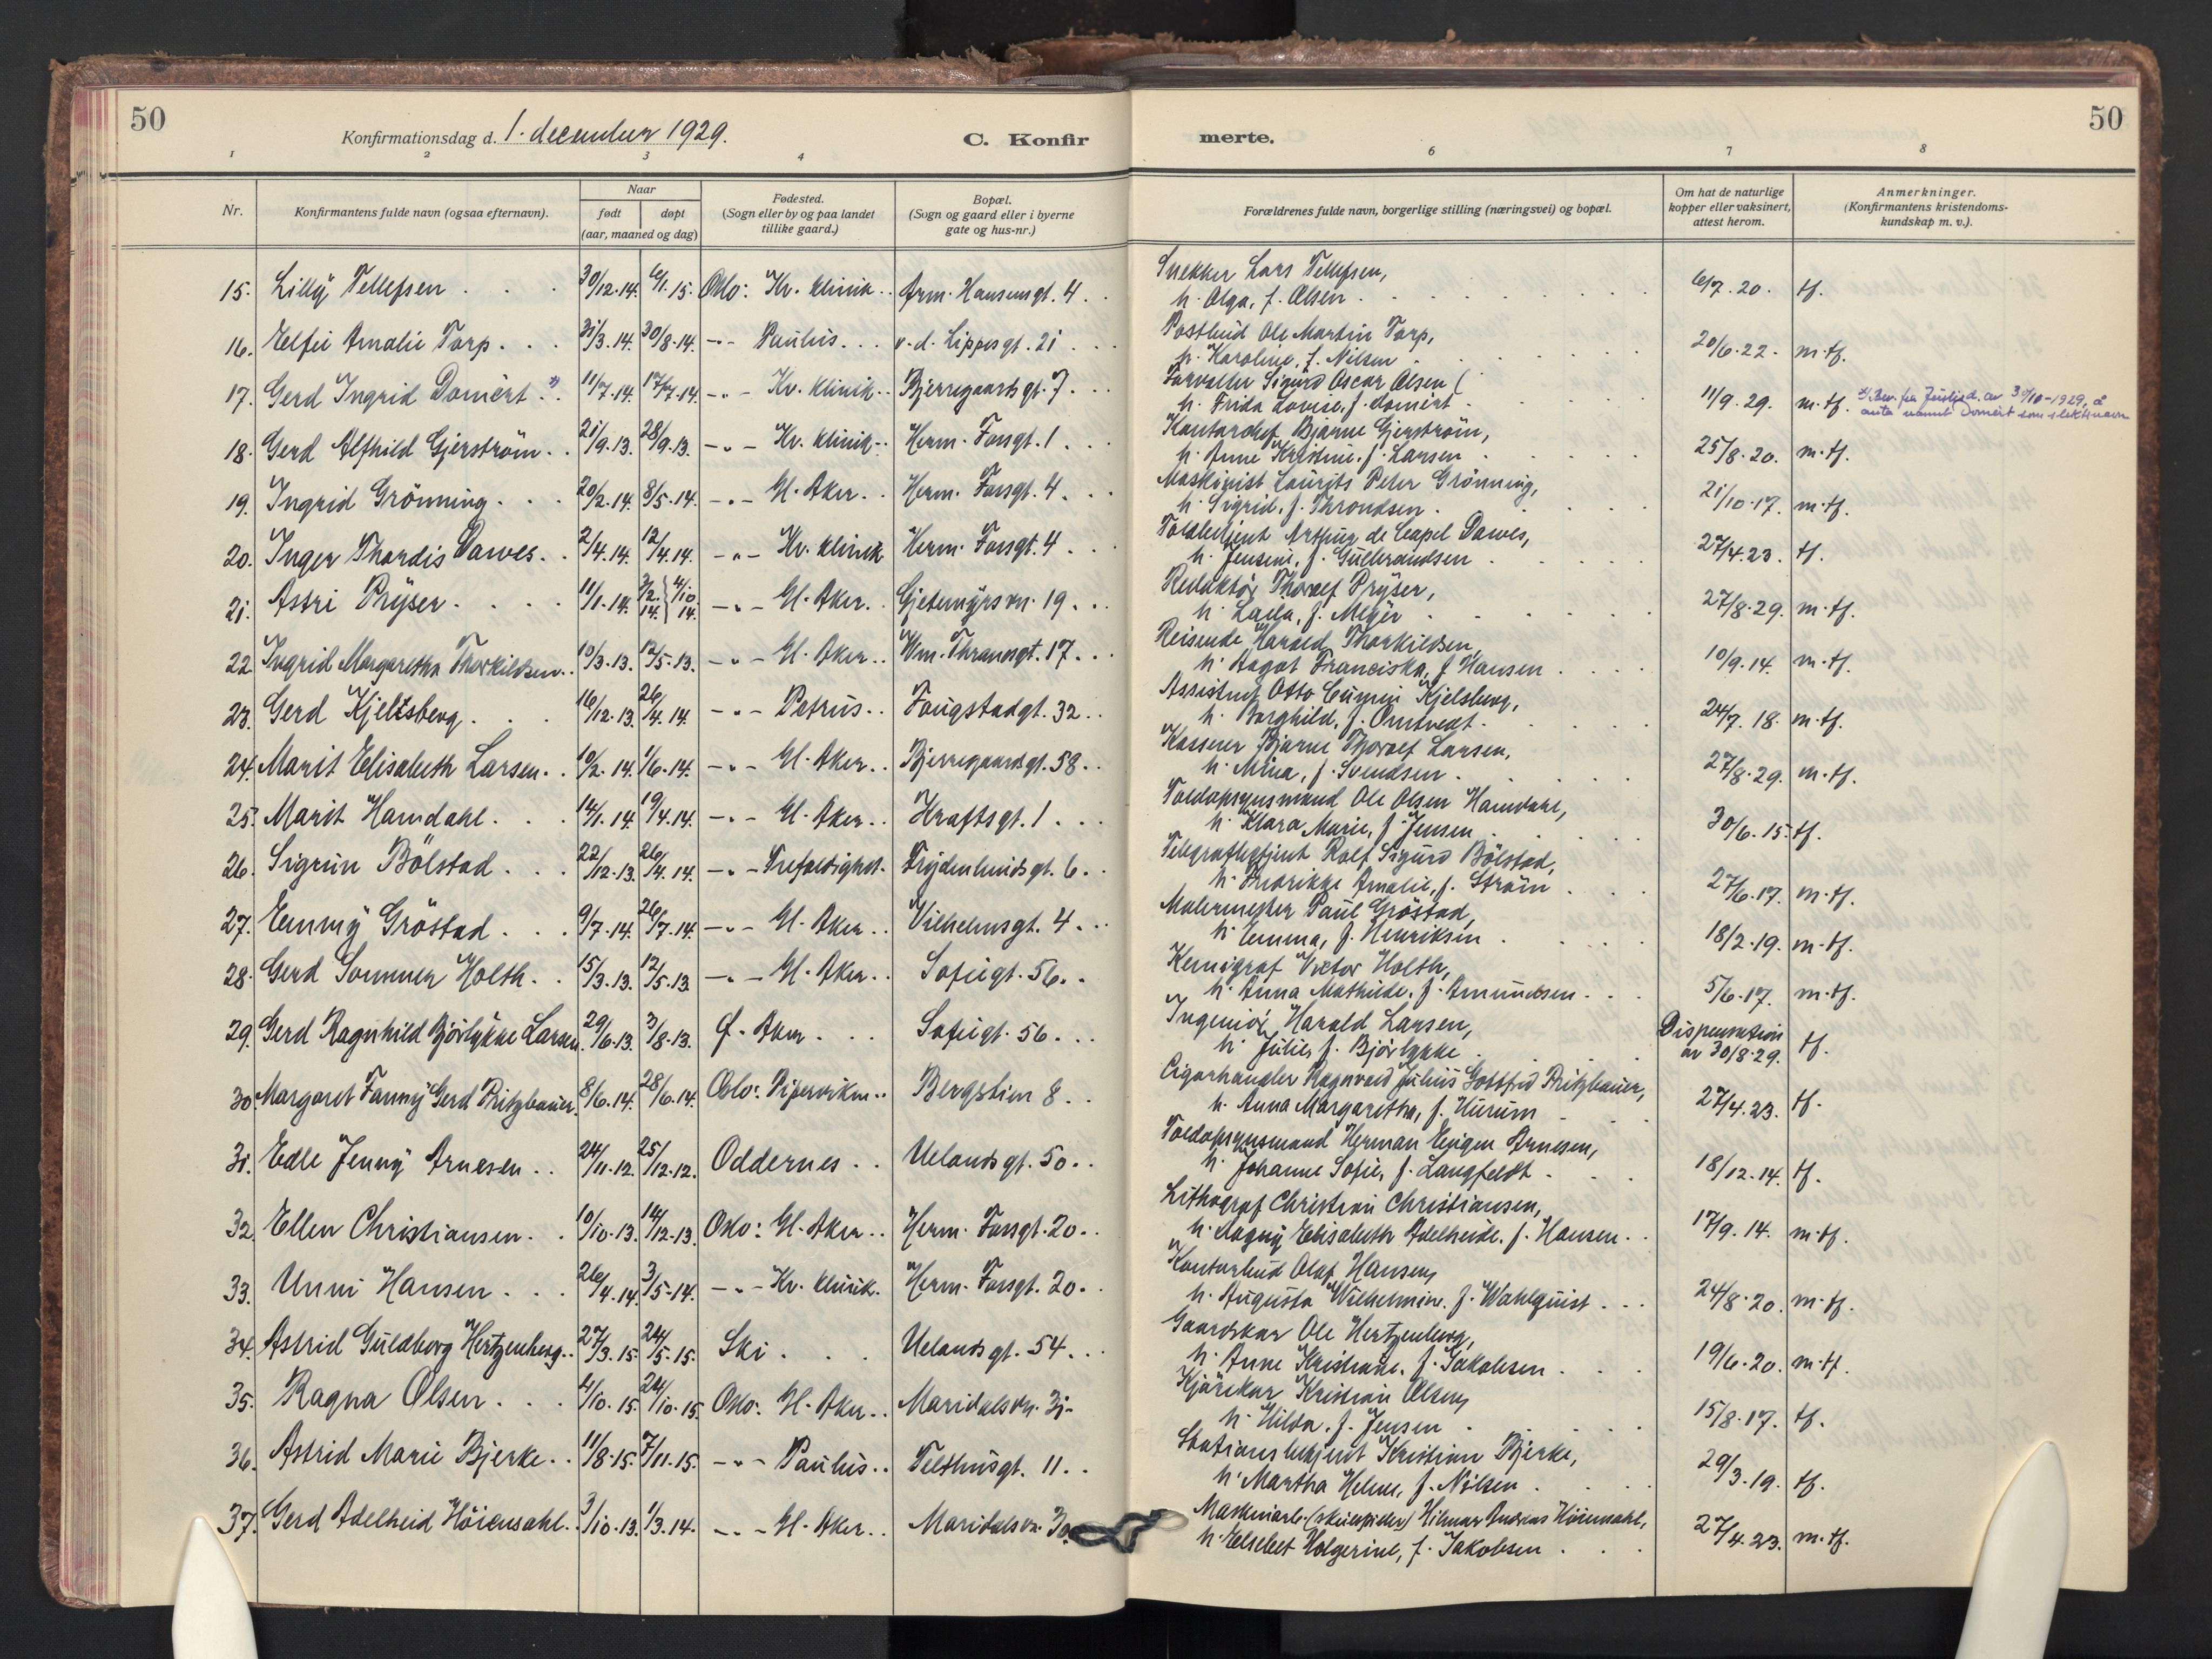 50
Konfirmationsdag d. 1. december 1929.
C. Konfir
merte.
50
1 2 3 4 6 7 8
Nr.
Konfirmantens fulde navn (ogsaa efternavn).
Naar
født
døpt
(aar, maaned og dag)
Fødested.
(Sogn eller by og paa landet
tillike gaard.)
Bopæl.
(Sogn og gaard eller i byerne
gate og hus-nr.)
Forældrenes fulde navn, borgerlige stilling (næringsvei) og bopæl.
Om hat de naturlige
kopper eller vaksinert,
attest herom.
Anmerkninger.
(Konfirmantens kristendoms-
kundskap m. v.).
15. Lilly Tellefsen . . . 30/12.14. 6/1.15. Oslo: Kv. klinik . . Arm. Hansensgt. 4 . .
Snekker Lars Tellefsen,
h. Olga, f. Olsen . . . 6/7.20. tf.
16. Elfie Amalie Torp . . . 31/3.14. 30/8.14. -"- Paulus . . . v. d. Lippesgt. 21 . . .
Postbud Ole Martin Torp,
h. Karoline, f. Nilsen . . . 20/6.22. m.tf.
17. Gerd Ingrid Domért . x) 11/7.14. 17/7.14. -"- Kv. klinik . . Bjerregaardsgt. 7 . . .
Forvalter Sigurd Oscar Olsen (
h. Frida Lovise, f. Domért . . . 11/9.29. m.tf. x) Bev. fra Justisd. av 30/10-1929, å
anta navnet Domért som slektsnavn
18. Gerd Alfhild Gjerström . . 21/9.13. 28/9.13. -"- Kv. klinik . . Herm. Fossgt. 1 . . .
Kontorchef Bjarne Gjerström,
h. Anne Kristine, f. Larsen . . . 25/8.20. m.tf.
19. Ingrid Grönning . . . 20/2.14. 8/5.14. -"- Gl. Aker . . Herm. Fossgt. 4 . . .
Maskinist Laurits Peter Grönning,
h. Sigrid, f. Throndsen . . . 21/10.17. m.tf.
20. Inger Thordis Dawes . . 2/4.14. 12/4.14. -"- Kv. klinik Herm. Fossgt. 4 . . .
Toldbetjent Arthur de Capel Dawes,
h. Jensine, f. Gulbrandsen . . . 27/4.23. tf.
21. Astri Prÿser . . . 11/1.14. 3/2.14. } 4/10.14. -"- Gl. Aker . . Gjetemyrsvn. 19 . . .
Redaktör Thorolf Prÿser,
h. Laila, f. Meÿer . . . 27/8.29. m.tf.
22. Ingrid Margarethe Thorkildsen . . 10/3.13. 12/5.13. -"- Gl. Aker . . Wm. Thranesgt. 17 . . .
Reisende Harald Thorkildsen,
h. Dagot Franciska, f. Hansen . . . 10/9.14. m.tf.
23. Gerd Kjelsberg . . . 16/12.13. 26/4.14. -"- Petrus . . Fougstadgt. 32 . .
Assistent Otto Eugen Kjelsberg,
h. Borghild, f. Omtvedt . . . 24/7.18. m.tf.
24. Marit Elisabeth Larsen . . 10/2.14. 1/6.14. -"- Gl. Aker . . Bjerregaardsgt. 58 . .
Kasserer Bjarne Thorolf Larsen,
h. Mina, f. Svendsen . . . 27/8.29. m.tf.
25. Marit Hamdahl . . . 14/1.14. 19/4.14. -"- Gl. Aker . . Kraftsgt. 1 . . .
Toldopsynsmand Ole Olsen Hamdahl,
h. Klara Marie, f. Jensen . . . 30/6.15. tf.
26. Sigrun Bölstad . . . 22/12.13. 26/4.14. -"- Trefoldighet. Frydenlundsgt. 6 . .
Telegrafbetjent Rolf Sigurd Bölstad,
h. Fredrikke Amalie, f. Ström . . . 27/6.17. m.tf.
27. Emmÿ Gröstad . . . 9/7.14. 26/7.14. -"- Gl. Aker . . Vilhelmsgt. 4 . . .
Malermester Paul Gröstad,
h. Emma, f. Henriksen . . . 18/2.19. m.tf.
28. Gerd Sommer Holth . . 15/3.13. 12/5.13. -"- Gl. Aker . . Sofiegt. 56 . .
Kemigraf Victor Holth,
h. Anna Mathilde, f. Amundsen . . . 5/6.17. m.tf.
29. Gerd Ragnhild Björlykke Larsen. 29/6.13. 3/8.13. Ø. Aker . . . Sofiegt. 56 . . .
Ingeniör Harald Larsen,
h. Julie, f. Björlykke . . . Dispensation
av 30/8.29. tf.
30. Margaret Fanny Gerd Pritzbauer 8/6.14. 28/6.14. Oslo: Pipervikn . . Bergstien 8 . .
Cigarhandler Ragnvald Julius Gottfred Pritzbauer,
h. Anna Margaretha, f. Hurum . . . 27/4.23. tf.
31. Edle Jenny Arnesen . . 24/11.12. 25/12.12. Oddernes . . Uelandsgt. 50 . .
Toldopsynsmand Herman Eugen Arnesen,
h. Johanne Sofie, f. Langfeldt . . . 18/12.14. tf.
32. Ellen Christiansen . . 10/10.13. 14/12.13. Oslo: Gl. Aker . . Herm. Fossgt. 20 . .
Lithograf Christian Christiansen,
h. Dagny Elisabeth Adelheide, f. Hansen . . 17/9.14. m.tf.
33. Unni Hansen . . . 26/4.14. 3/5.14. -"- Kv. klinik. Herm. Fossgt. 20 . .
Kontorbud Olaf Hansen,
h. Augusta Wilhelmine, f. Wahlquist . . . 24/8.20. m.tf.
34. Astrid Guldborg Hertzenberg . . 27/3.15. 24/5.15. Ski . . . Uelandsgt. 54 . . .
Gaardskar Ole Hertzenberg,
h. Anne Kristiane, f. Jakobsen . . . 19/6.20. m.tf.
35. Ragna Olsen . . . 4/10.15. 24/10.15. Oslo: Gl. Aker . . Maridalsvn. 31.
Kjörekar Kristian Olsen,
h. Hilda, f. Jensen . . . 15/8.17. tf.
36. Astrid Marie Bjerke . . 11/8.15. 7/11.15. -"- Paulus . . Telthusgt. 11 . .
Stationsbetjent Kristian Bjerke,
h. Martha Helene, f. Nilsen . . . 29/3.19. tf.
37. Gerd Adelheid Höiensahl . . 3/10.13. 1/3.14. -"- Gl. Aker . . Maridalsvn. 30.
Maskinarb. Hilmar Andreas Höiensahl,
h. Elsebet Holgerine, f. Jakobsen . . . 27/4.23. m.tf.